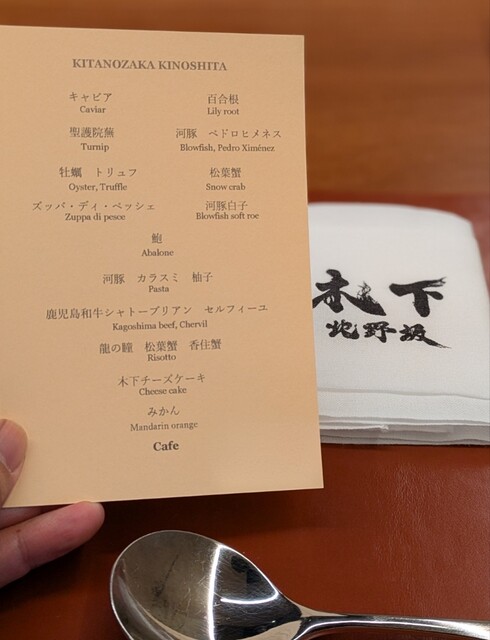 KITANOZAKA KINOSHITA
キャビア 百合根
Caviar Lily root
聖護院蕪 河豚 ペドロヒメネス
Turnip Blowfish, Pedro Ximénez
牡蠣 トリュフ 松葉蟹
Oyster, Truffle Snow crab
ズッパ・ディ・ペッシェ 河豚白子
Zuppa di pesce Blowfish soft roe
鮑
Abalone
河豚 カラスミ 柚子
Pasta
鹿児島和牛シャトーブリアン セルフィーユ
Kagoshima beef, Chervil
龍の瞳 松葉蟹 香住蟹
Risotto
木下チーズケーキ
Cheese cake
みかん
Mandarin orange
Cafe
木下
北野坂